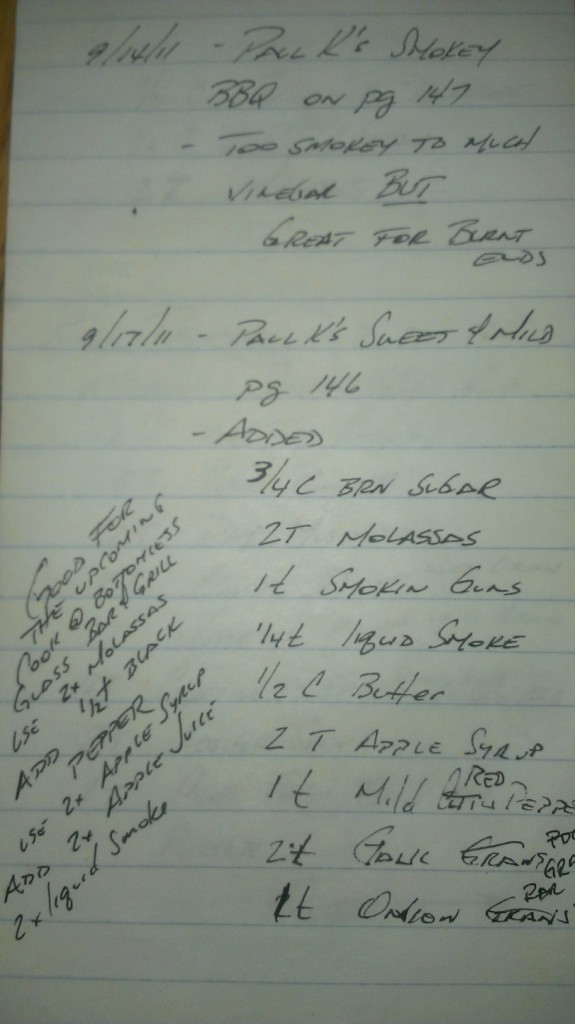 9/14/11 - PAUL K'S SMOKEY
BBQ ON pg 147
- TOO SMOKEY TO MUCH
VINEGAR BUT
GREAT FOR BURNT
ENDS
9/17/11 - PAUL K'S SWEET & MILD
pg 146
- ADDED
3/4 C BRN SUGAR
2T MOLASSAS
1t SMOKIN GUNS
1/4t liquid SMOKE
1/2 C Butter
2 T APPLE SYRUP
1t Mild RED PEPPE
2t GALIC GRANS
1t ONION GRANS
GOOD FOR
THE UPCOMING
COOK @ BOTTOMLESS
GLASS BAR & GRILL
USE 2x MOLASSAS
ADD 1/2t BLACK
PEPPER
USE 2x APPLE SYRUP
ADD 2x APPLE JUICE
2x liquid Smoke